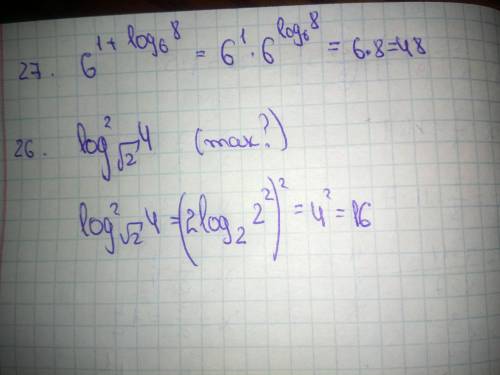 27. 6^{1+log_6 8} = 6^1 · 6^{log_6 8} = 6·8=48
26. log^2_{√2} 4 (max?)
log^2_{√2} 4 = (2log_2 2^2)^2 = 4^2 = 16